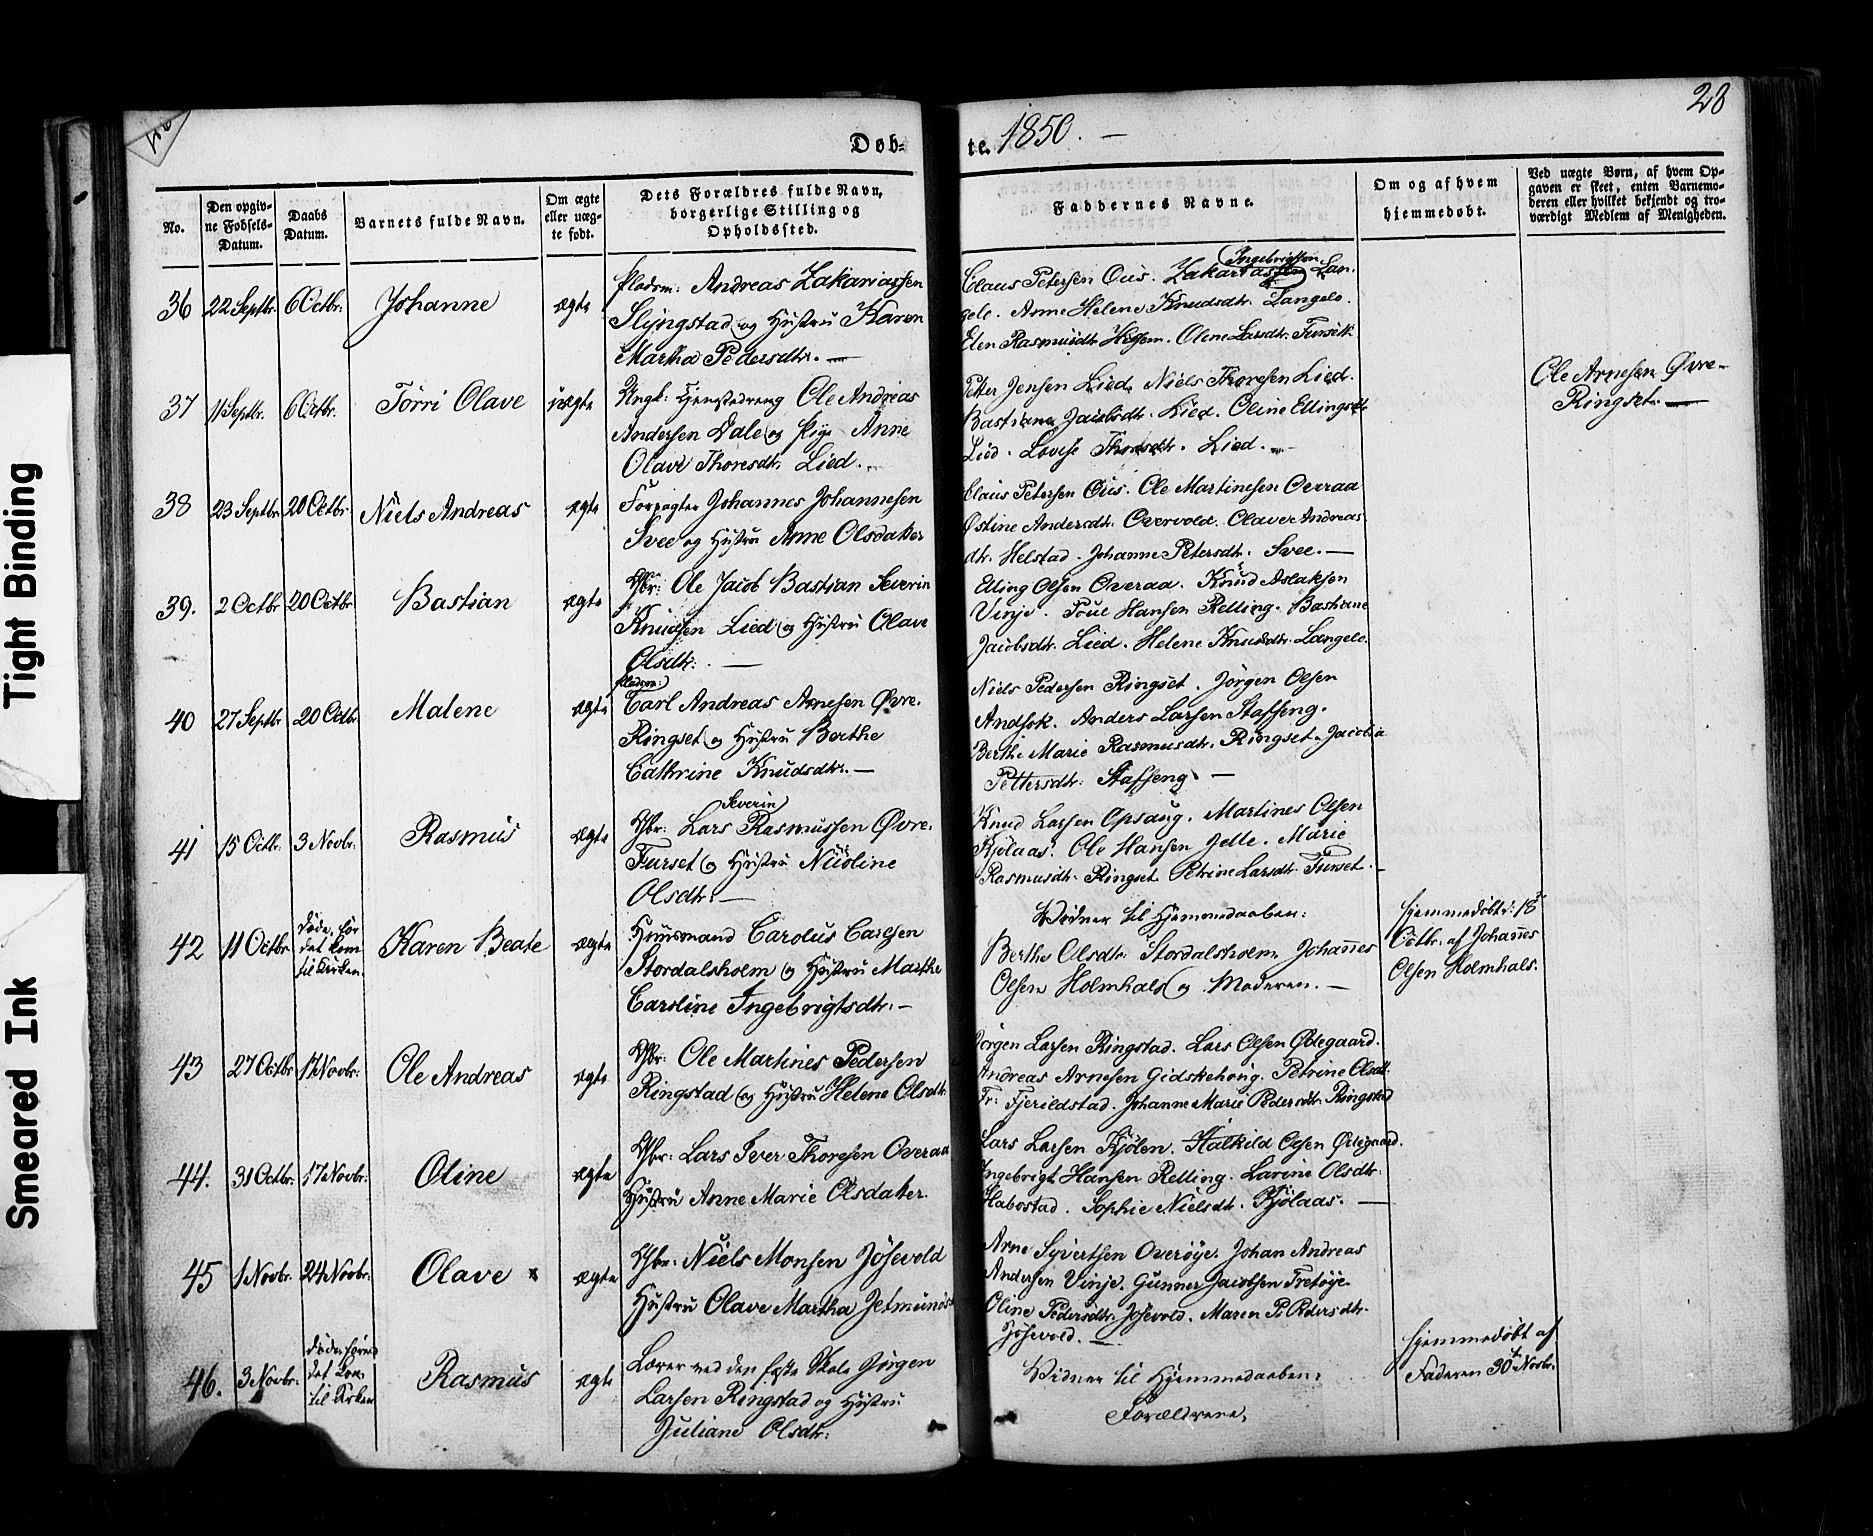 Tight Binding
Smeared Ink
Døb-
te. 1850. —
28
No.
Den opgiv-
ne Fødsels-
Datum.
Daabs
Datum.
Barnets fulde Navn.
Om ægte
eller uæg-
te født.
Dets Forældres fulde Navn,
borgerlige Stilling og
Opholdssted.
Faddernes Navne.
Om og af hvem
hiemmedøbt.
Ved uægte Børn, af hvem Op-
gaven er skeet, enten Barnemo-
deren eller hvilket bekjendt og tro-
værdigt Medlem af Menigheden.
36 22 Septbr. 6 Octbr. Johanne ægte
Pladsm: Andreas Zakariassen
Slyngstad og Hustru Karen
Martha Pedersdtr. —
Ingebrigtsen
Claus Petersen Ous. Zakariassen Lan-
gelo. Anne Helene Knudsdtr. Langelo.
Elen Rasmusdtr. Olene Larsdtr. Fursett
37 11 Septbr. 6 Octbr. Torri Olave uægte
Ungk: Tjenstedreng Ole Andreas
Andersen Dale og Pige Anne
Olave Thoresdtr. Lied.
Petter Jensen Lied. Niels Thoresen Lied.
Bastiane Jacobsdtr. Lied. Oline Ellingsdtr
Lied. Lovise Thoresdtr. Lied. —
Ole Arnesen Øvre-
Ringset. —
38 23 Septbr 20 Octbr. Niels Andreas ægte
Forpagter Johannes Johannesen
Svee og Hustru Anne Olsdatter
Claus Petersen Ous. Ole Martinesen Overaa
Østine Andersdtr. Overvold. Olave Andreas-
dtr. Helstad. Johanne Petersdtr. Svee. —
39. 2 Octbr 20 Octbr Bastian ægte
Gbr: Ole Jacob Bastian Severin
Knudsen Lied og Hustru Olave
Olsdtr. —
Elling Olsen Overaa. Knud Aslaksen
Vinje. Poul Hansen Relling. Bastiane
Jacobsdtr. Lied. Helene Knudsdtr. Langelo.
40 27 Septbr 20 Octbr Malene ægte
Pladsm:
Carl Andreas Arnesen Øvre-
Ringset og Hustru Berthe
Cathrine Knudsdtr. —
Niels Pedersen Ringset. Jørgen Olsen
Andsok. Anders Larsen Staffeng.
Berthe Marie Rasmusdtr. Ringset. Jacobia
Pettersdtr. Staffeng. —
41 15 Octbr. 3 Novbr. Rasmus ægte
Severin
Gbr: Lars Rasmussen Øvre-
Furset og Hustru Nicoline
Olsdtr. —
Knud Larsen Opsaug. Martines Olsen
Kjølaas. Ole Hansen Jelle. Marie
Rasmusdtr. Ringset. Petrine Larsdtr. Furset. —
42 11 Octbr
Døde, før
det kom
til Kirken.
Karen Beate ægte
Huusmand Carolus Carlsen
Stordalsholm og Hustru Marthe
Caroline Ingebrigtsdtr. —
Vidner til Hjemmedaaben:
Berthe Olsdtr. Stordalsholm. Johannes
Olsen Holmhals og Moderen. —
Hjemmedøbt d: 18
Octbr. af Johannes
Olsen Holmhals.
43 27 Octbr 17 Novbr. Ole Andreas ægte
Gbr: Ole Martines Pedersen
Ringstad og Hustru Helene Olsdtr.
Jørgen Larsen Ringstad. Lars Olsen Ødegaard.
Andreas Arnesen Gidskehoug. Petrine Olsdtr.
Fr: Fjerildstad. Johanne Marie Pedersdtr. Ringstad
44. 31 Octbr. 17 Novbr. Oline ægte
Gbr: Lars Iver Thoresen Overaa
Hustru Anne Marie Olsdatter.
Lars Larsen Kjølen. Halkild Olsen Ødegaard.
Ingebrigt Hansen Relling. Larine Olsdtr:
Habostad. Sophie Nielsdtr. Kjølaas. —
45 1 Novbr. 24 Novbr. Olave x ægte
Gbr: Niels Monsen Jøsevold
Hustru Olave Martha Jetmunds
Arne Syvertsen Overøye. Johan Andreas
Andersen Vinje. Gunner Jacobsen Fretøye.
Oline Pedersdtr. Jøsevold. Maren P. Pedersdtr.
Jøsevold. —
46. 3 Novbr.
Døde førend
det kom
til Kirken
Rasmus ægte
Lærer ved den faste Skole Jørgen
Larsen Ringstad og Hustru
Juliane Olsdtr.
Vidner til Hjemmedaaben:
Forældrene.
Hjemmedøbt af
Faderen 30te Novbr.